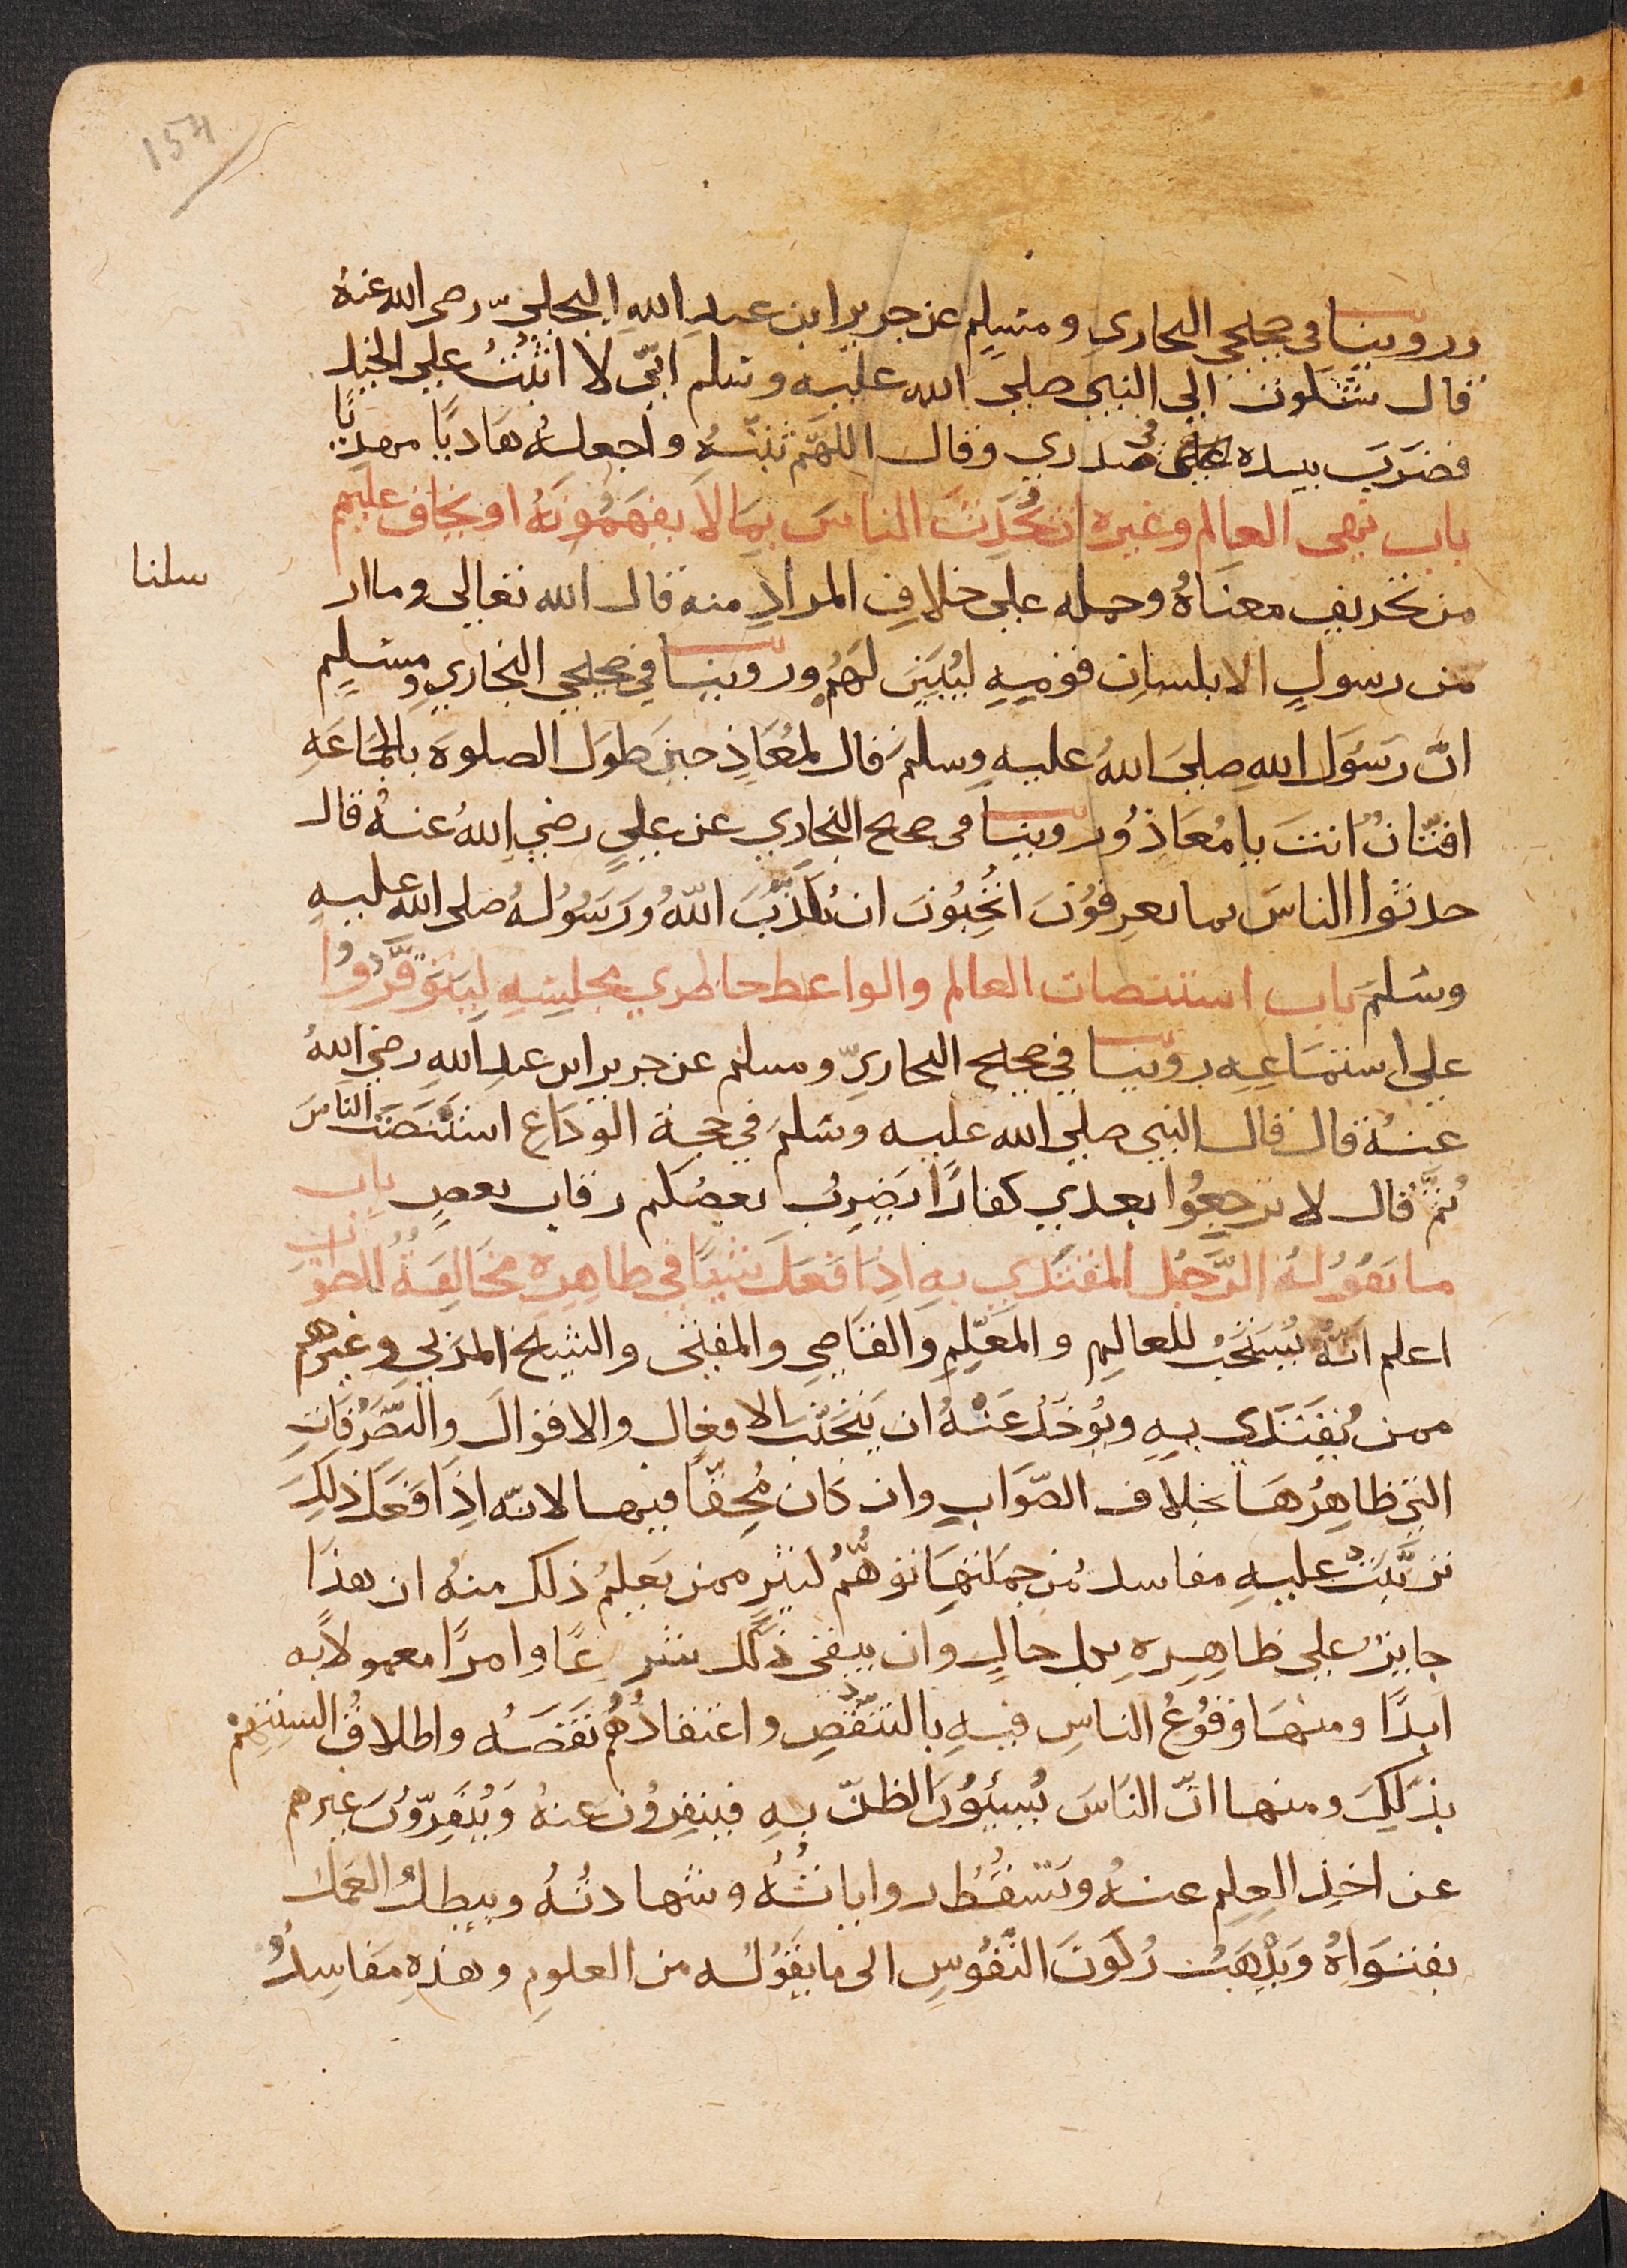 154
وروينا في صحيحي البخاري ومسلم عن جرير ابن عبد اللهِ البجليّ رضي الله عنهُ
قال شكوت الي النبي صلي الله عليه وسلم انّي لا اثبُتُ علي الخيل
فضَرَبَ بيده في صدري وقال اللهّم ثبّتهُ واجعلهُ هَاديًا مهديًا
باب نهي العالم وغيره ان يُحَدِّثَ الناسَ بِمَا لاَ يفهَمُونَهُ او يخاف عليهم
من تحريف معنَاهُ وحمله علي خلافِ المرادِ منه قال الله تعالي وما ار
سلنا
من رسولٍ الا بلسانِ قوميهِ ليُبَيّنَ لهَمُ وروينا في صحيحي البخاري ومسلِمٍ
انّ رَسُوَل اللهِ صلي اللهُ عليهِ وسلم قال لمُعَاذٍ حينَ طوَل الصلوة بالجَماعَهِ
افتّانٌ انتَ يا مُعَاذُ وروينا في صحيح البخاري عن عليٍ رضي اللهُ عنهُ قال
حدثوا الناسَ بما يعرِفوُنَ اتُحِبُونَ ان يُكذَّبَ اللّهُ وَرَسُولهُ صلى الله عليهِ
وسَلمَ باب استنصات العالم والواعظ حاضري مجلسِهِ لِيَتَوَفَّروُا
علي استمَاعِهِ روينا في صحيح البخاريّ ومسلم عن جرير ابن عبد اللهِ رضي اللهُ
عنهُ قال قال النبي صلي الله عليه وسَلمَ في حجة الودَاعِ استَنصَت الناسَ
ثمَّ قال لا ترجِعُوا بعدي كفارًا يَضرِبُ بعضُكم رقاب بعضٍ باب
ما يَقوُلهُ الرَّجُل المقتَدَي بهِ اذِا فَعَل شيئًا في ظاهِرِهِ مخَالِفَةُ للصوَاب
اعلم انّهُ يُسَتحَبُ للعالِمِ والمعَلّمِ والقاضِي والمفتي والشيخ المرَبي وغيرهم
ممن يُقتَدَي بهِ ويُوخَذُ عَنهُ ان يَتجَنّبَ الافعال والاقوالَ والتصَّرُفَاتِ
التي ظاهِرُهَا خلاف الصّوَابِ وان كان مُحِقّا فيها لانّه اذَا فَعَل ذلِكَ
ترتَّبَت عليهِ مفاسد مُن جمَلتهَا توَهُّمُ كثيرٍ ممن يَعلمُ ذلك منهُ ان هذَا
جايز علي ظاهِرِهِ بكل حالٍ وان يبقي ذَلك شرعًا وامرًا معمولاً به
ابدًا ومنهَا وَقوُعُ الناسِ فيهِ بالتنقّصِ واعتقادُهُم نَقصَهُ واطلاقُ السِنتهِمْ
بذَلِكَ ومنها انّ الناَسَ يُسيئوُنَ الظنّ بهِ فينفِروُن عنهُ وَيُنَفِرّوُنَ غيرهم
عن اخذِ العِلمِ عنهُ وَتسقُطُ رواياتهُ وشهادتُهُ ويبطلُ العَملُ
بفتوَاهُ وَيذهَبُ رُكوُنَ النّفُوسِ الى ما يَقوُله من العلومِ وهذهِ مَفاسِدُ